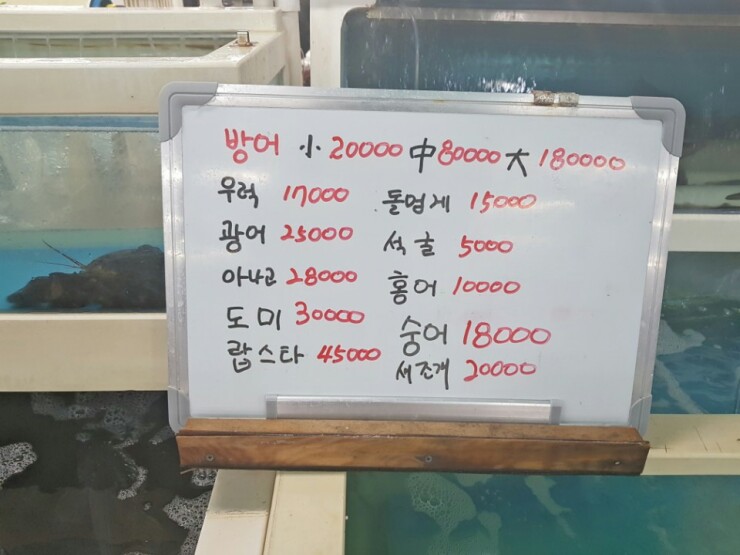 방어 小 20000 中 80000 大 180000
우럭 17000 돌멍게 15000
광어 25000 석굴 5000
아나고 28000 홍어 10000
도미 30000 숭어 18000
랍스타 45000 새조개 20000